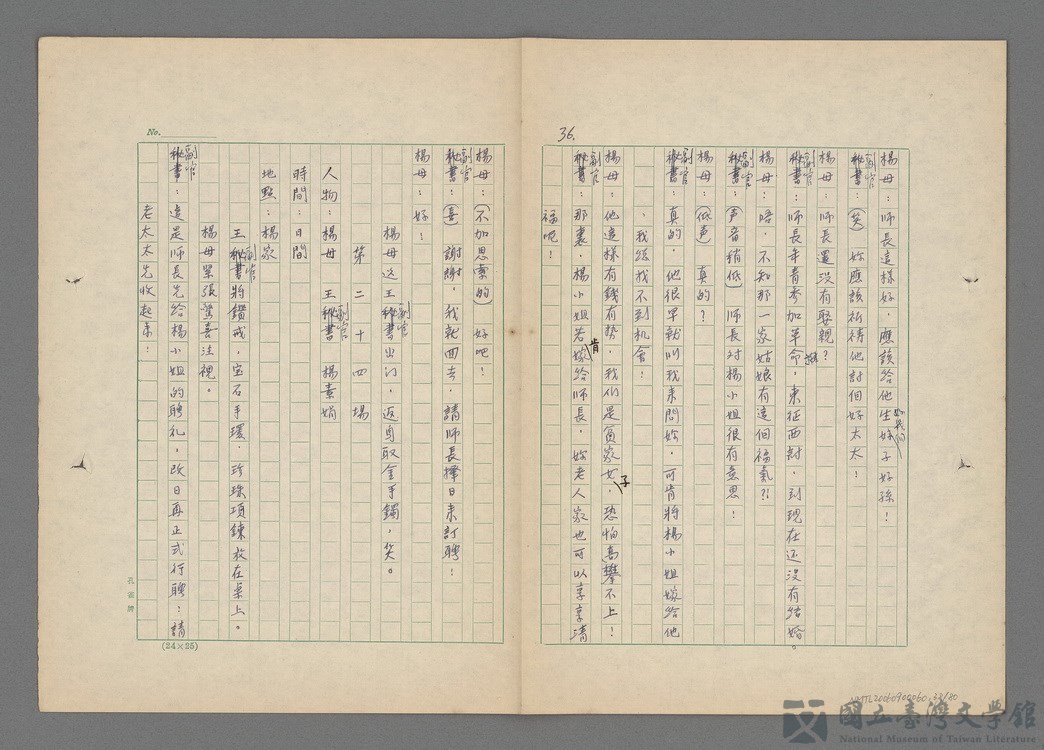 36.
楊母：師長這樣好，應該給他生好子好孫！
副官：(笑) 妳應該祈禱他討個好太太！
楊母：師長還沒有娶親？
副官：師長年青參加革命，東征西討，到現在还沒有結婚。
楊母：唔，不知那一家姑娘有這個福氣？！
副官：(声音稍低) 師長対楊小姐很有意思！
楊母：(低声) 真的？
副官：真的，他很早就叫我來問妳，可肯將楊小姐嫁給他
，我総找不到机会！
楊母：他這樣有錢有勢，我们是貧家女子，恐怕高攀不上！
副官：那裏，楊小姐若肯嫁給師長，妳老人家也可以享享清
福呢！
楊母：(不加思索的) 好吧！
副官：(喜) 謝謝，我就回去，請師長擇日來訂聘！
楊母：好！
楊母送王副官出门，返身取金手鐲，笑。
第二十四場
人物：楊母 王副官 楊素娟
時間：日間
地點：楊家
王副官將鑽戒，宝石手環，珍珠項鍊放在桌上。
楊母緊張驚喜注視。
副官：這是師長先給楊小姐的聘礼，改日再正式行聘！請
老太太先收起來！
No.
孔雀牌
(24×25)
國立臺灣文學館
National Museum of Taiwan Literature